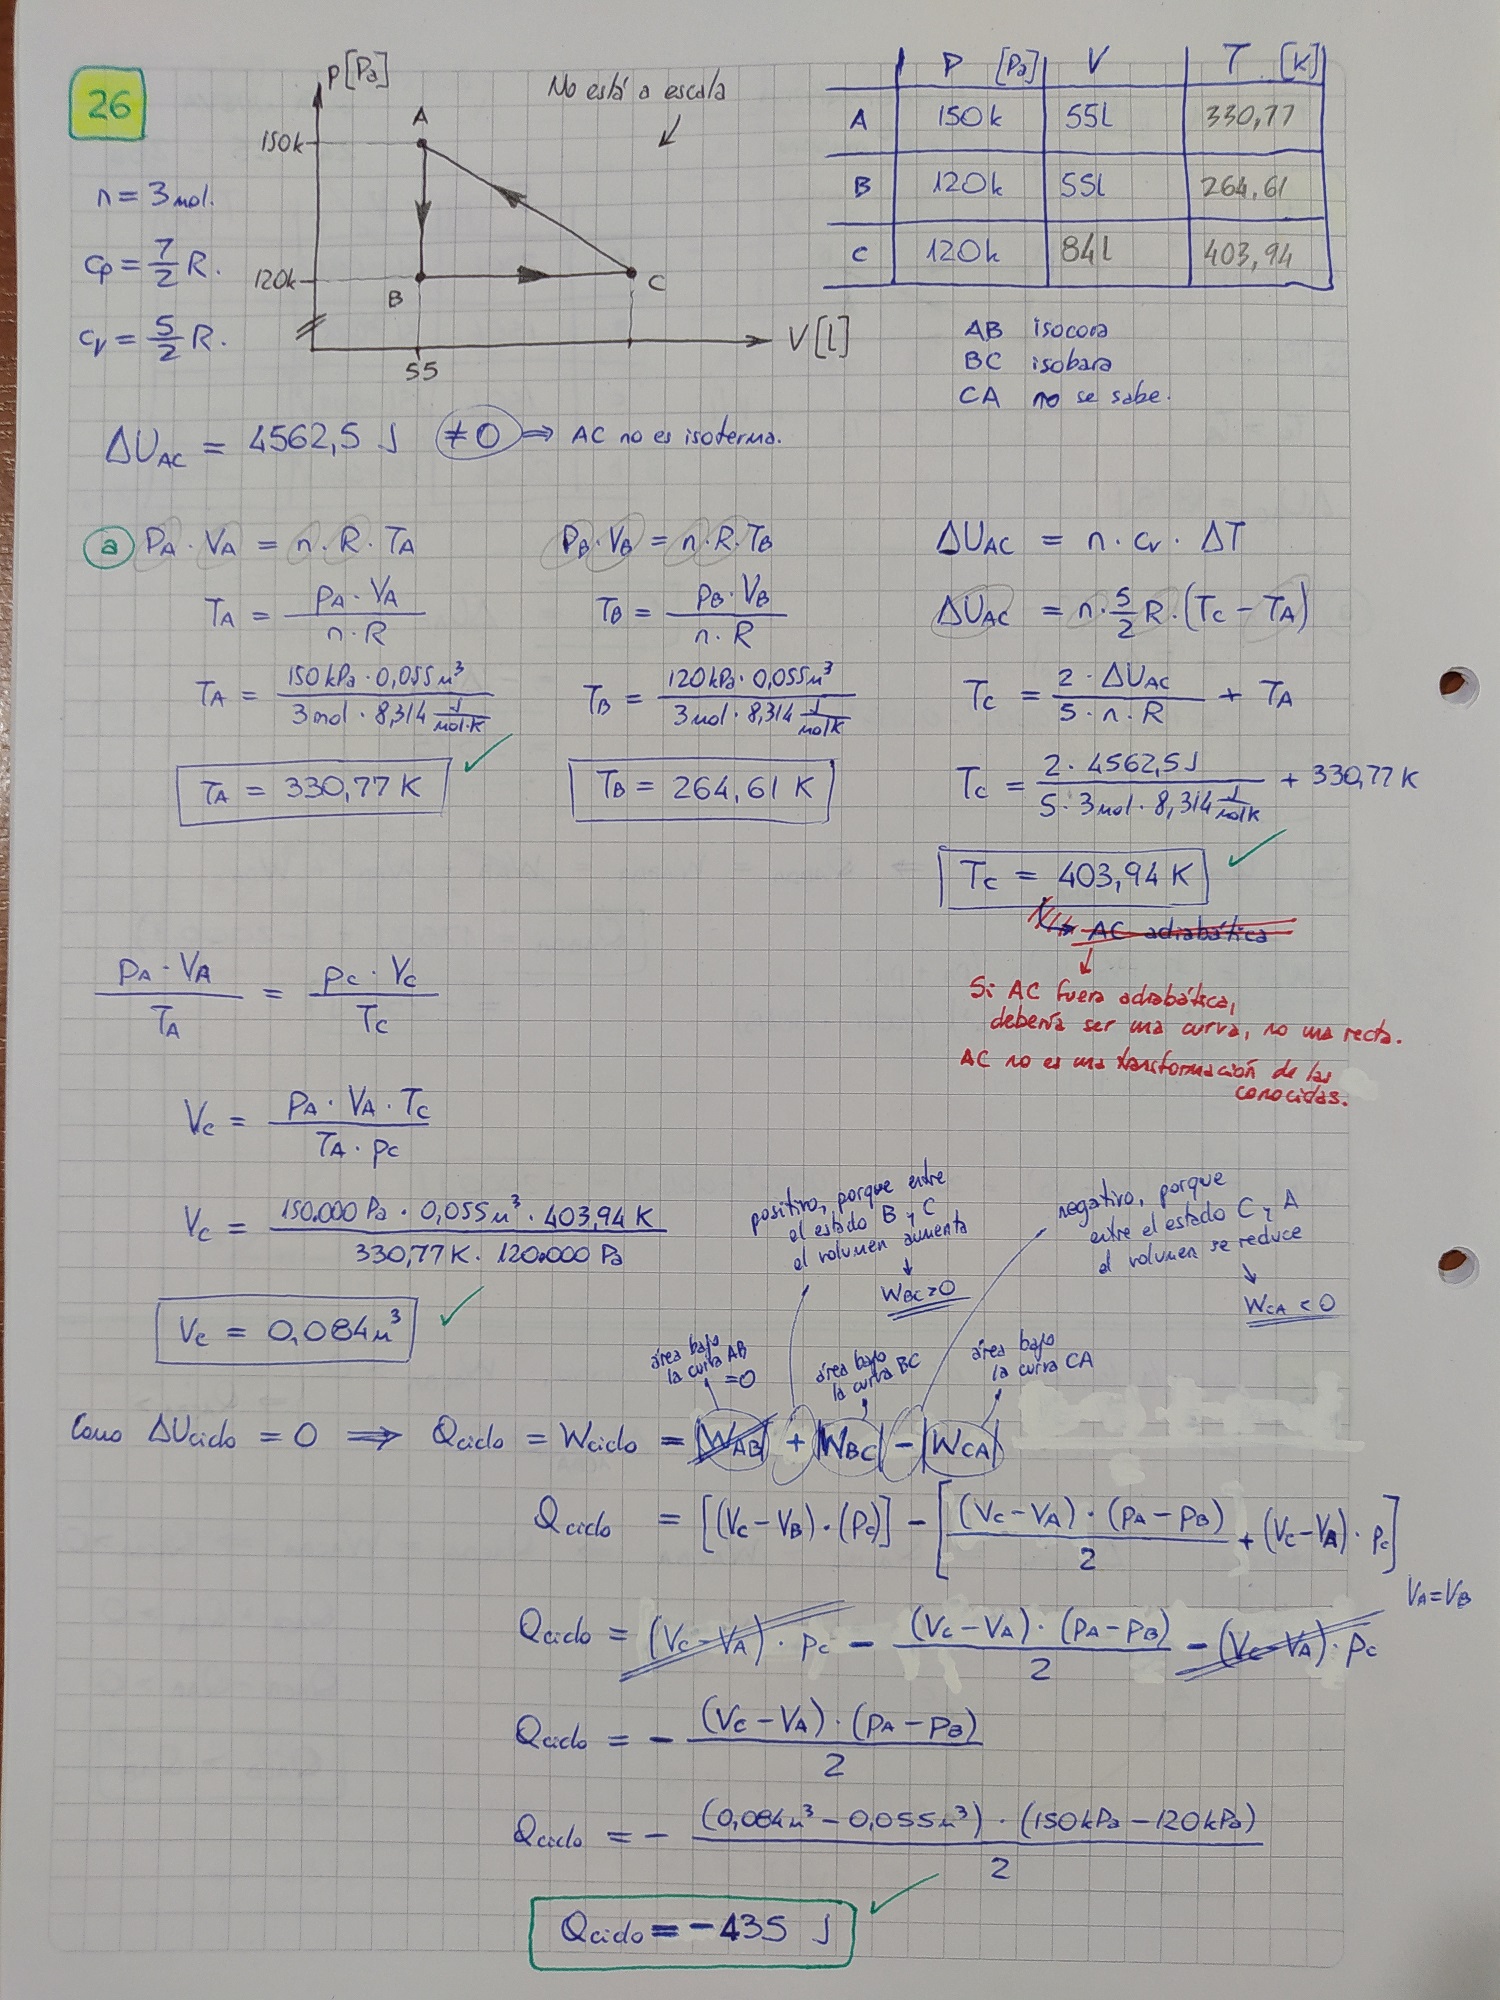 26
P[Pa]
No está a escala
A
150k
120k
B
C
55
V[l]
n = 3 mol.
cp = 7/2 R.
cv = 5/2 R.
P [Pa] V T [K]
A 150k 55l 330,77
B 120k 55l 264,61
C 120k 84l 403,94
AB isocora
BC isobara
CA no se sabe.
ΔU_AC = 4562,5 J ≠0 ⇒ AC no es isoterma.
a P_A · V_A = n · R · T_A
T_A = (P_A · V_A) / (n · R)
T_A = (150 kPa · 0,055 m³) / (3 mol · 8,314 J/mol·K)
T_A = 330,77 K
P_B · V_B = n · R · T_B
T_B = (P_B · V_B) / (n · R)
T_B = (120 kPa · 0,055 m³) / (3 mol · 8,314 J/mol K)
T_B = 264,61 K
ΔU_AC = n · cv · ΔT
ΔU_AC = n · 5/2 R · (T_C − T_A)
T_C = (2 · ΔU_AC) / (5 · n · R) + T_A
T_C = (2 · 4562,5 J) / (5 · 3 mol · 8,314 J/mol K) + 330,77 K
T_C = 403,94 K
AC adiabática
Si AC fuera adiabática,
debería ser una curva, no una recta.
AC no es una transformación de las
conocidas.
(P_A · V_A) / T_A = (P_C · V_C) / T_C
V_C = (P_A · V_A · T_C) / (T_A · P_C)
V_C = (150.000 Pa · 0,055 m³ · 403,94 K) / (330,77 K · 120.000 Pa)
V_C = 0,084 m³
positivo, porque entre
el estado B y C
el volumen aumenta
W_BC > 0
negativo, porque
entre el estado C y A
el volumen se reduce
W_CA < 0
área bajo
la curva AB
= 0
área bajo
la curva BC
área bajo
la curva CA
Como ΔUciclo = 0 ⇒ Qciclo = Wciclo = |W_AB| + |W_BC| − |W_CA|
Qciclo = [(V_C − V_B) · (P_C)] − [(V_C − V_A) · (P_A − P_B) / 2 + (V_C − V_A) · P_C]
V_A = V_B
Qciclo = (V_C − V_A) · P_C − (V_C − V_A) · (P_A − P_B) / 2 − (V_C − V_A) · P_C
Qciclo = − (V_C − V_A) · (P_A − P_B) / 2
Qciclo = − (0,084 m³ − 0,055 m³) · (150 kPa − 120 kPa) / 2
Qciclo = −435 J